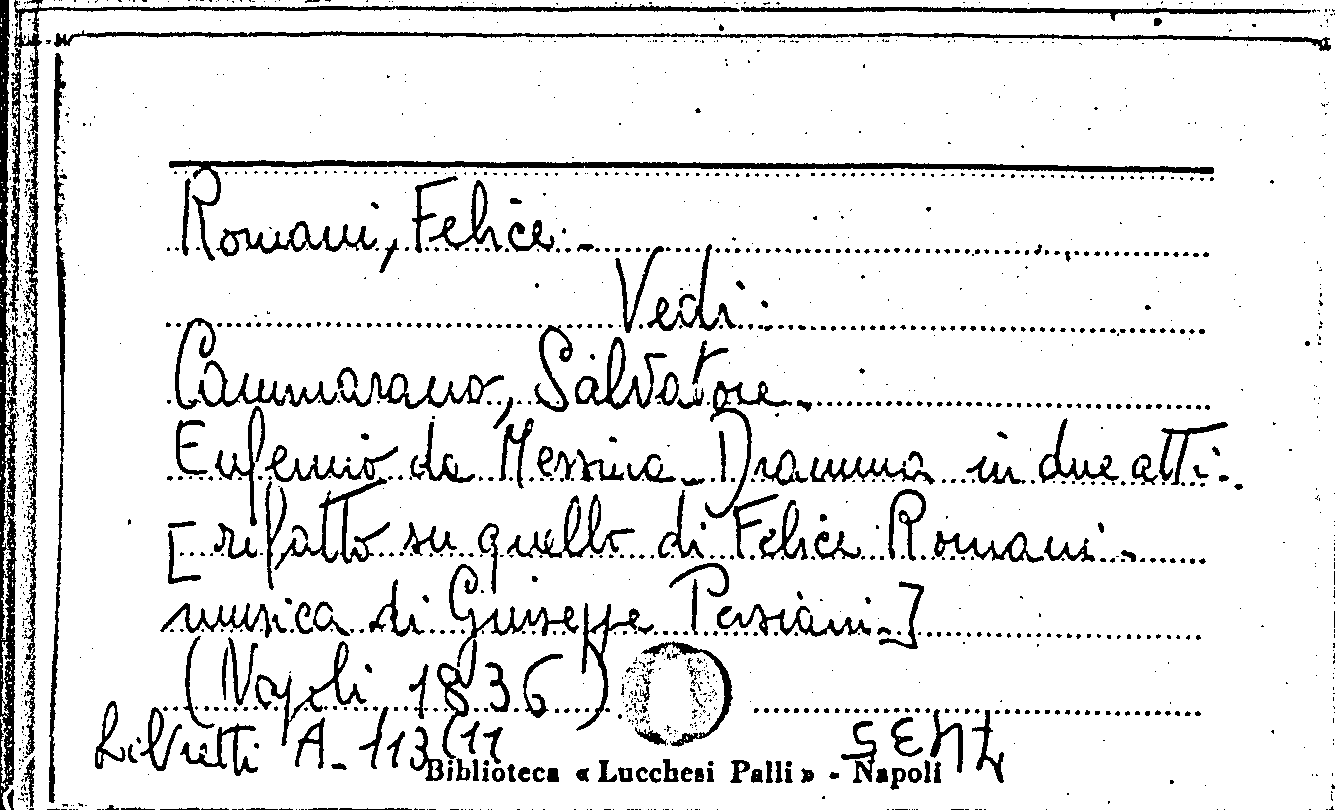 Romani, Felice. -
Vedi:
Cammarano, Salvatore.
Eufemio da Messina. Dramma in due atti.
[rifatto su quello di Felice Romani -
musica di Giuseppe Persiani.]
(Napoli 1836)
Libretti A - 113 (11
Biblioteca « Lucchesi Palli » - Napoli